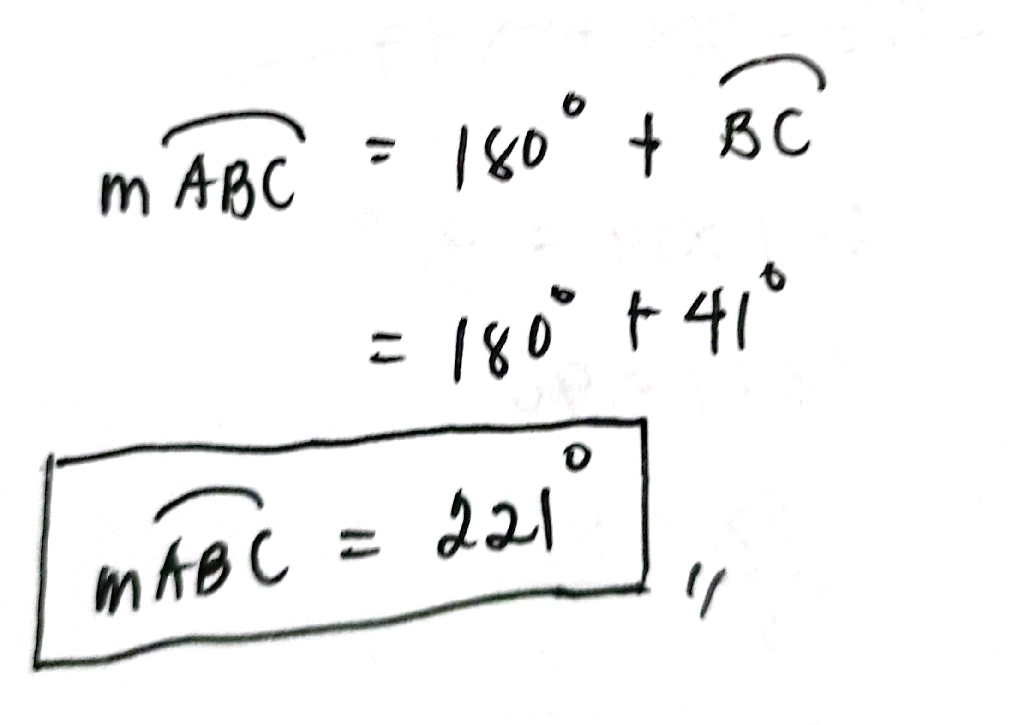 m ABC = 180° + BC
= 180° + 41°
mABC = 221° //